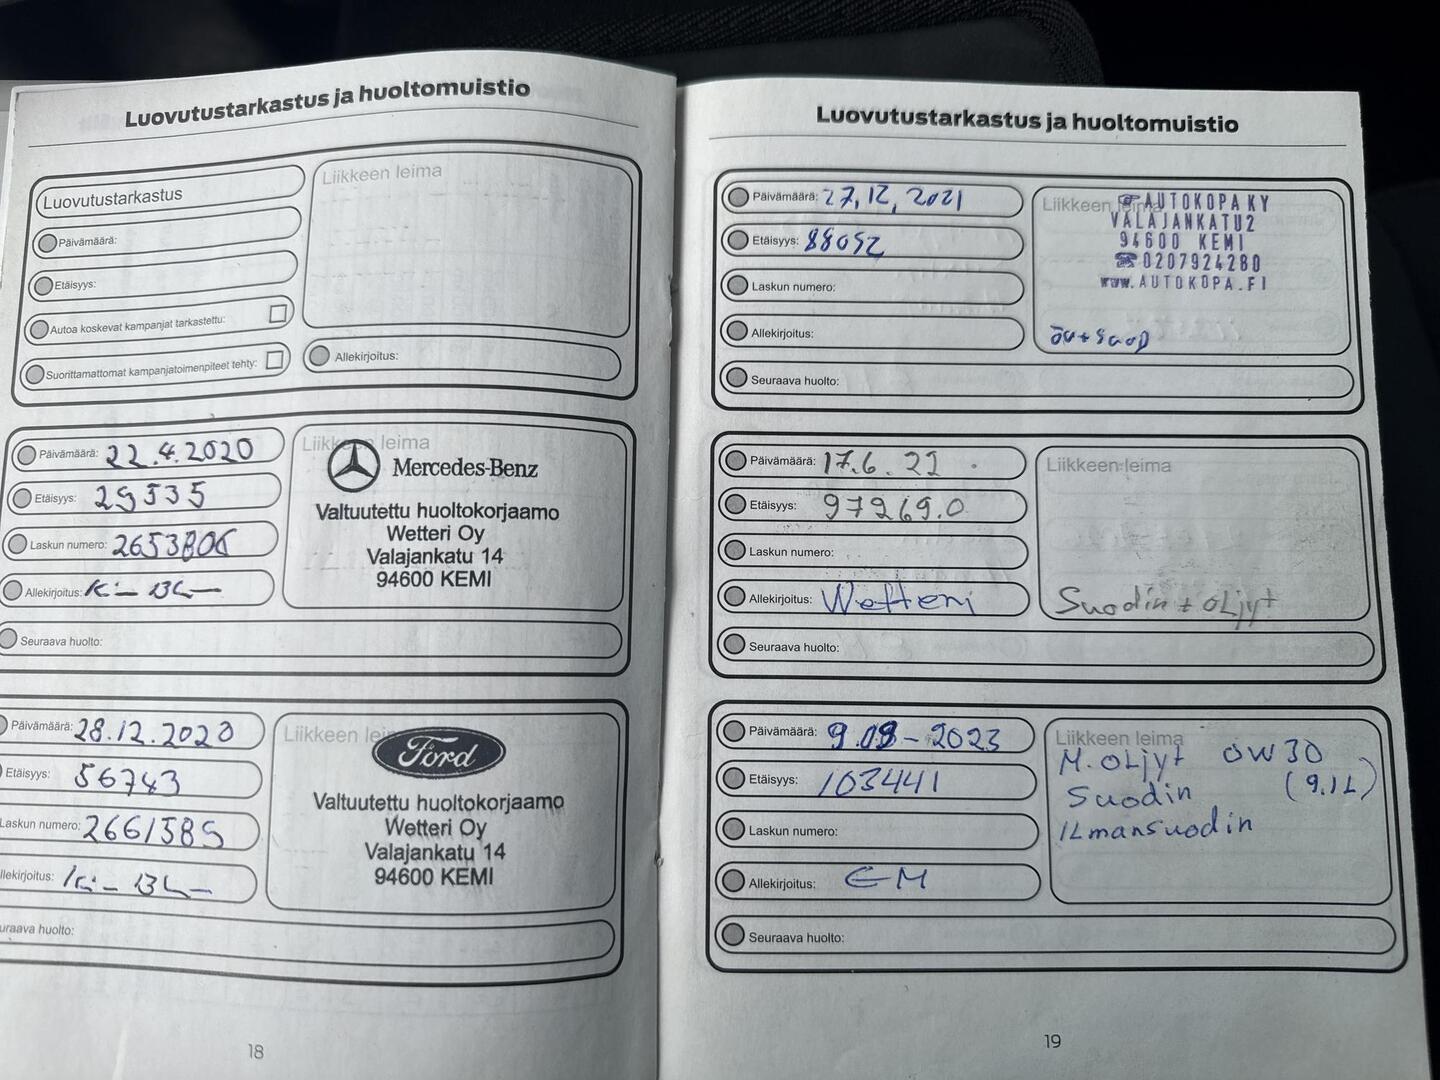 Luovutustarkastus ja huoltomuistio
Luovutustarkastus
Liikkeen leima
Päivämäärä:
Etäisyys:
Autoa koskevat kampanjat tarkastettu:
Suorittamattomat kampanjatoimenpiteet tehty:
Allekirjoitus:
Päivämäärä: 22.4.2020
Etäisyys: 29535
Laskun numero:
Allekirjoitus:
Seuraava huolto:
Liikkeen leima
Mercedes-Benz
Valtuutettu huoltokorjaamo
Wetteri Oy
Valajankatu 14
94600 KEMI
Päivämäärä: 28.12.2020
Etäisyys: 56743
Laskun numero: 2661585
Allekirjoitus:
Seuraava huolto:
Liikkeen leima
Ford
Valtuutettu huoltokorjaamo
Wetteri Oy
Valajankatu 14
94600 KEMI
18
Luovutustarkastus ja huoltomuistio
Päivämäärä: 27.12.2021
Etäisyys: 88052
Laskun numero:
Allekirjoitus:
Seuraava huolto:
Liikkeen leima
AUTOKOPA KY
VALAJANKATU2
94600 KEMI
0207924280
www.AUTOKOPA.FI
Päivämäärä: 17.6.22
Etäisyys: 97269.0
Laskun numero:
Allekirjoitus: Wetteri
Seuraava huolto:
Liikkeen leima
Suodin + oLjyt
Päivämäärä: 9.08-2023
Etäisyys: 103441
Laskun numero:
Allekirjoitus: EM
Seuraava huolto:
Liikkeen leima
M.oLjyt OW30
Suodin (9.1L)
ILmansuodin
19